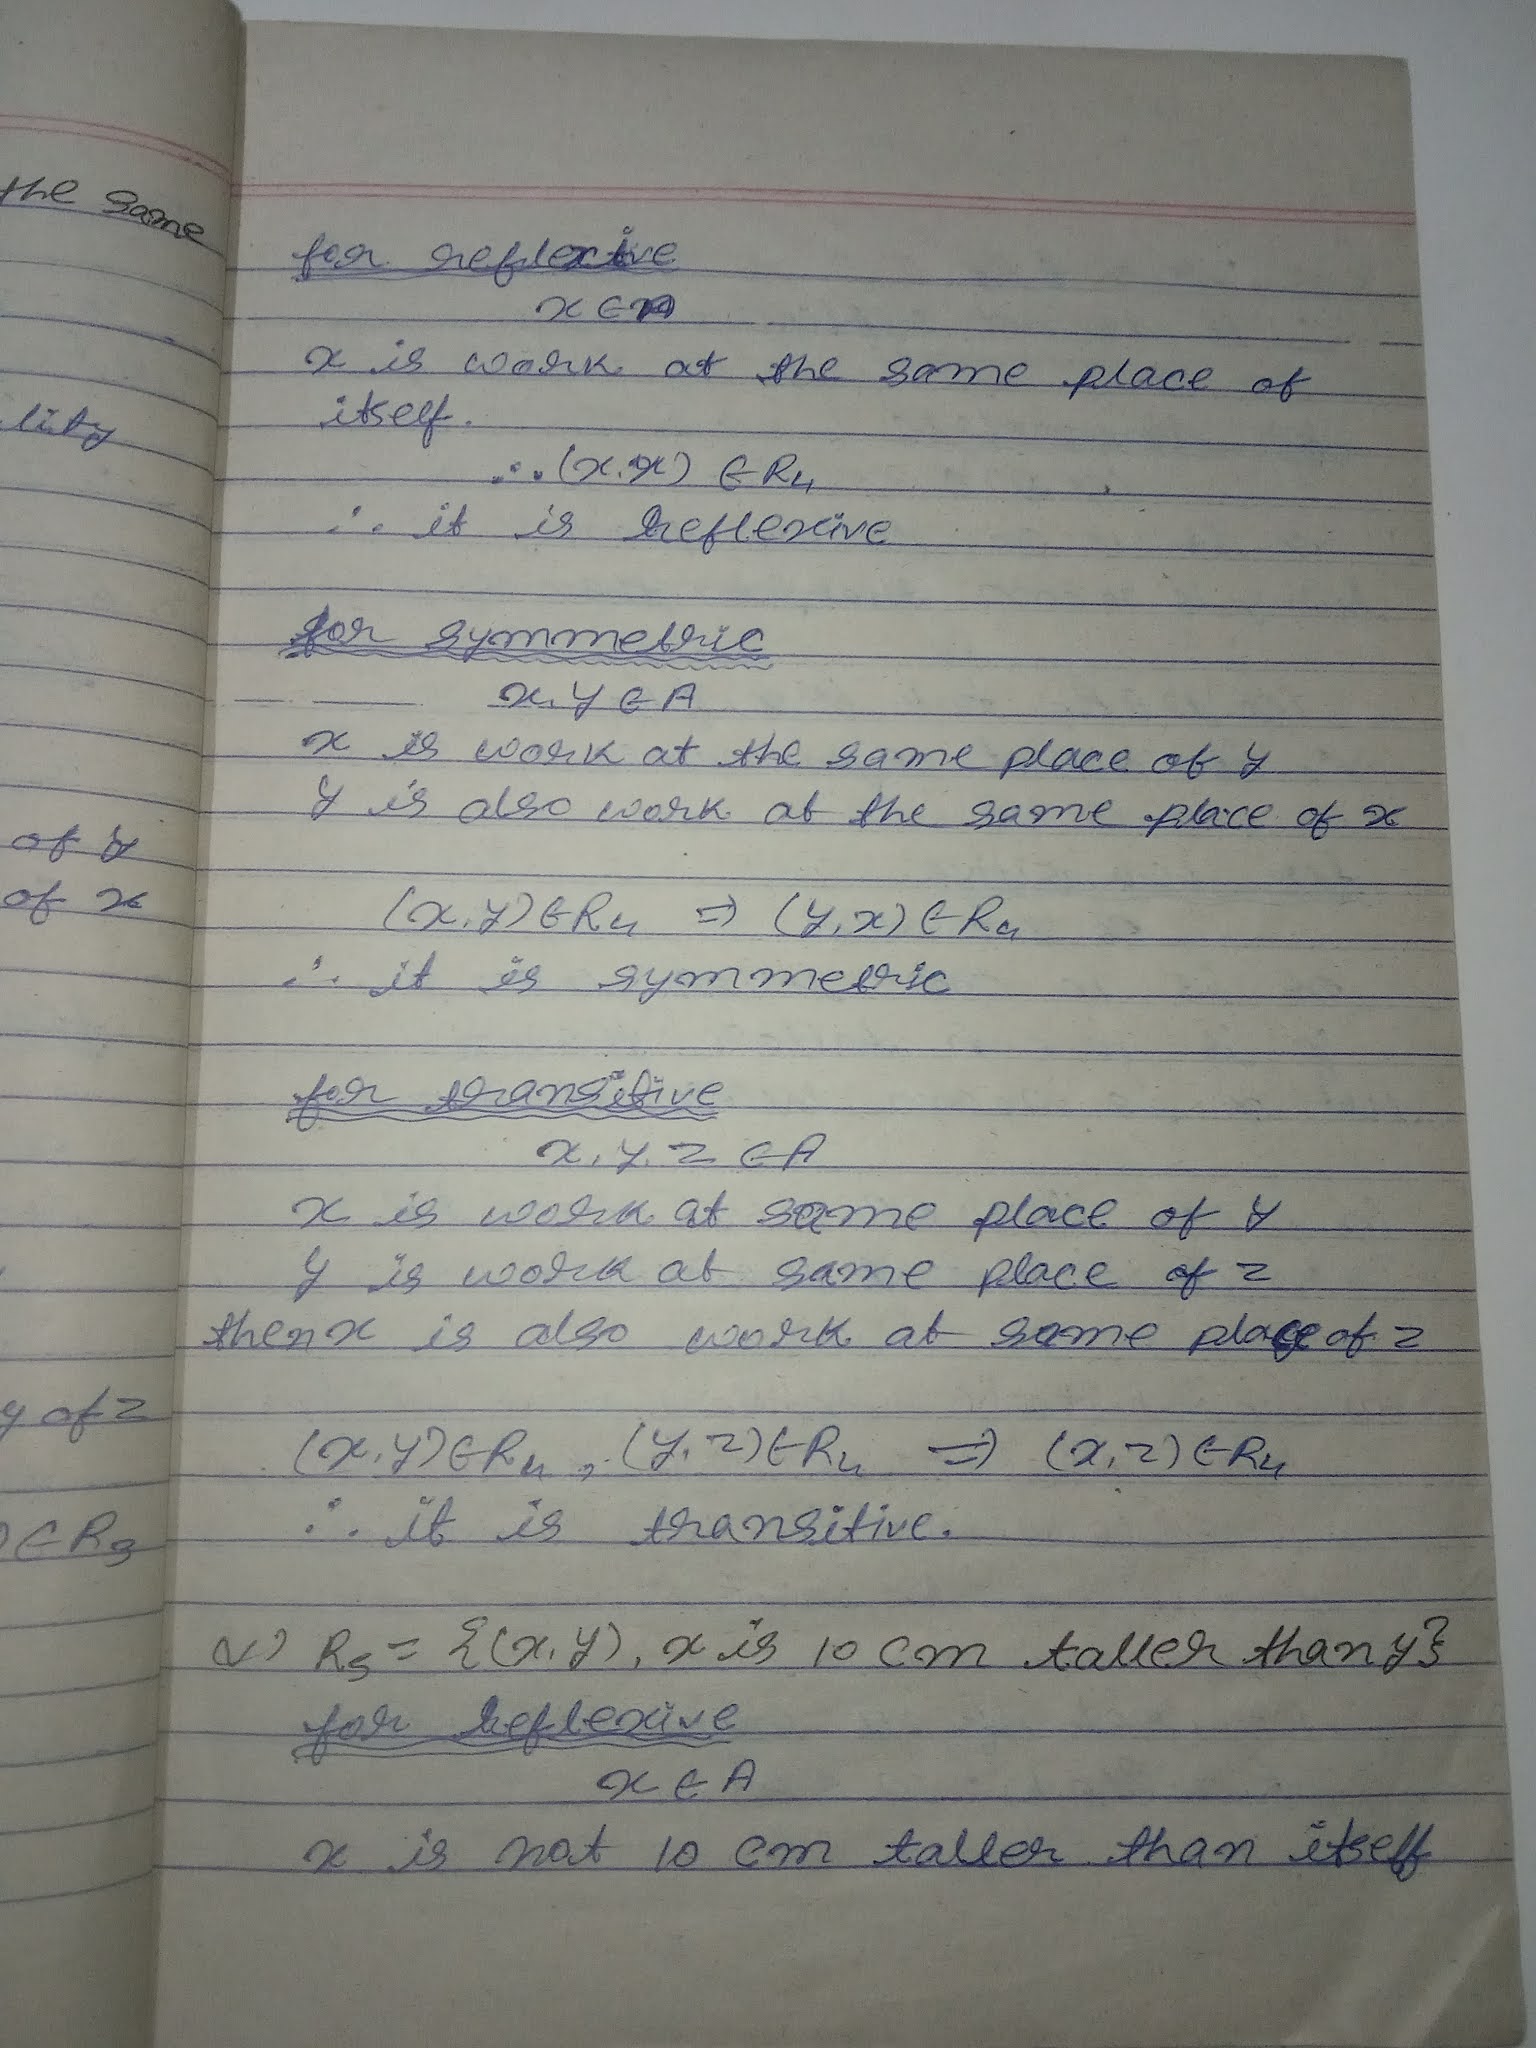 the same
lity
of y
of x
y of z
) ∈ R3
for reflexive
x ∈ A
x is work at the same place of
itself.
∴ (x, x) ∈ R4
∴ it is reflexive
for symmetric
x, y ∈ A
x is work at the same place of y
y is also work at the same place of x
(x, y) ∈ R4 ⇒ (y, x) ∈ R4
∴ it is symmetric
for transitive
x, y, z ∈ A
x is work at same place of y
y is work at same place of z
then x is also work at same place of z
(x, y) ∈ R4, (y, z) ∈ R4 ⇒ (x, z) ∈ R4
∴ it is transitive.
v) R5 = {(x, y), x is 10 cm taller than y}
for reflexive
x ∈ A
x is not 10 cm taller than itself